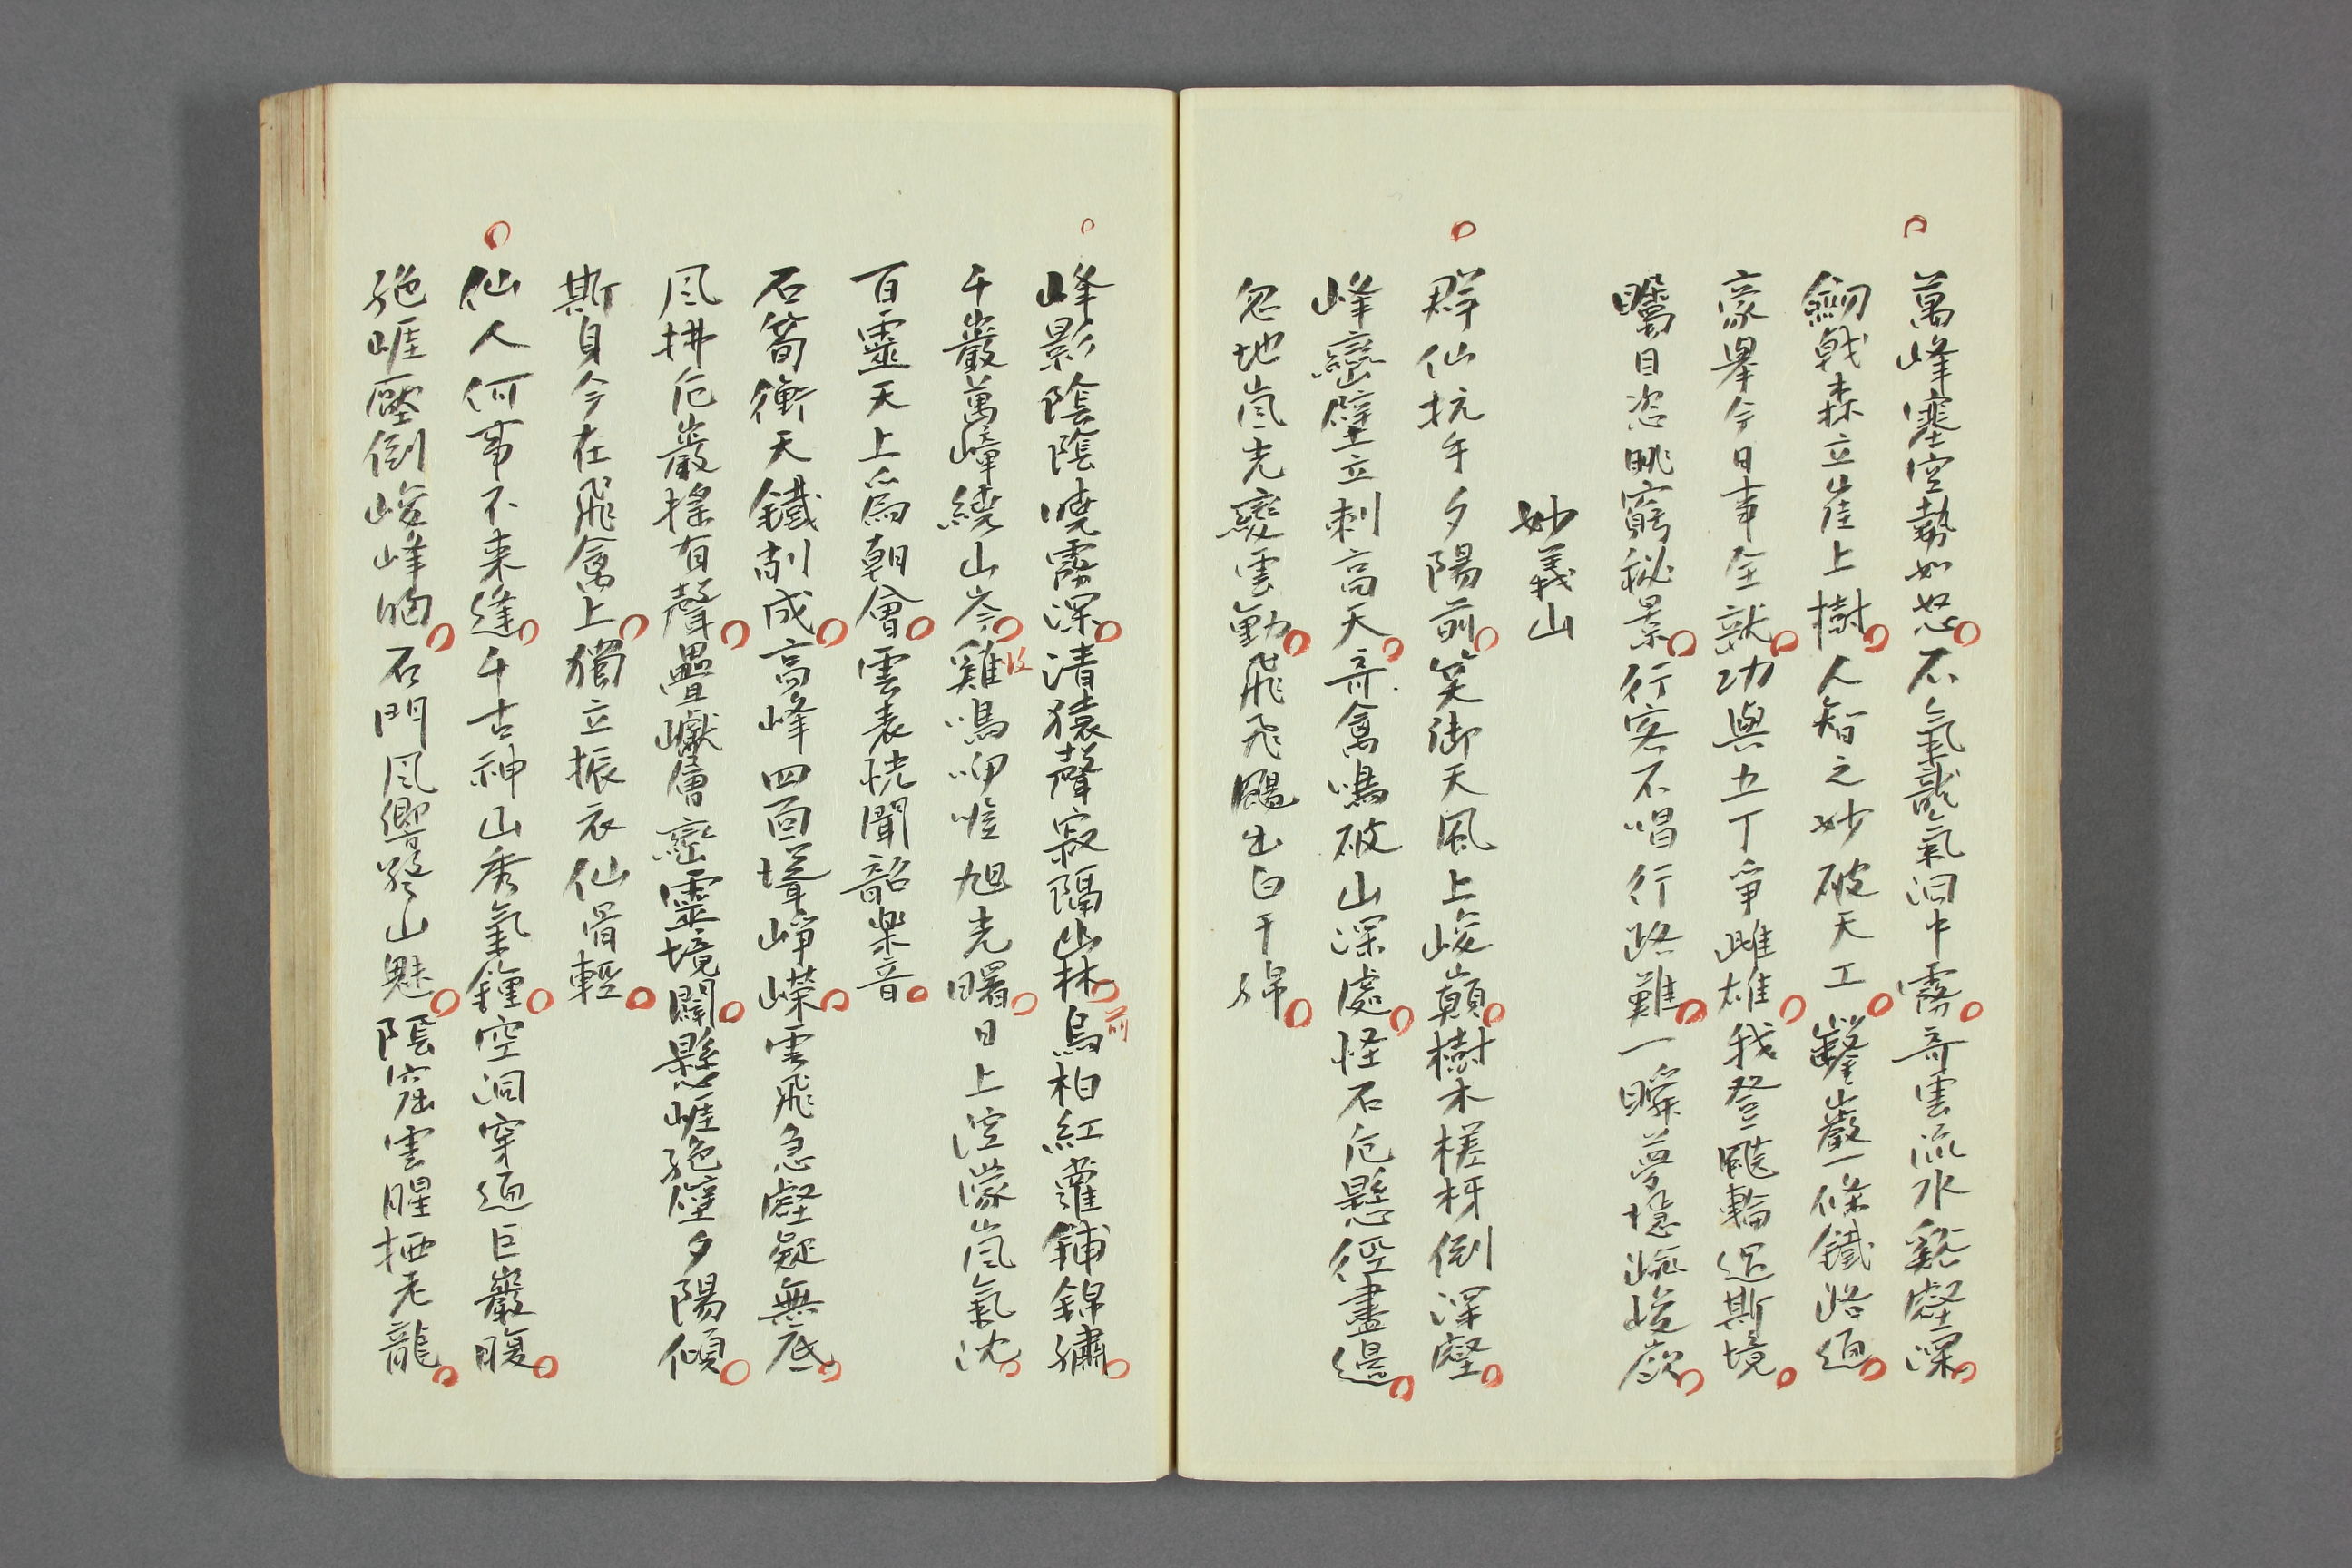 萬峰塞空勢如怒石氣龍氣洞中霧奇雲流水谿壑深
劒戟森立崖上樹人智之妙破天工鑿巖一條鐵路通
豪舉今日事全就功與五丁爭雌雄我登飈輪過斯境
矚目恣眺窮秘景行客不唱行路難一瞬夢墮峻嶺
妙義山
群仙抗手夕陽前笑御天風上峻巔樹木槎枒倒深壑
峰巒壁立刺高天奇禽鳴破山深處怪石危懸徑盡邊
忽地嵐光變雲動飛飛颺出白于綿
峰影陰陰曉霧深清猿聲寂隔山林前烏桕紅蘿鋪錦繡
千巖萬嶂繞山岑後雞鳴咿喔旭光曙日上涳濛嵐氣沈
百靈天上爲朝會雲表恍聞韶樂音
石筍衝天鐵削成高峰四面聳崢嶸雲飛急壑疑無底
風拂危巖搖有聲疊巘層巒靈境闢懸崕絶壁夕陽傾
斯身今在飛禽上獨立振衣仙骨輕
仙人何事不來逢千古神山秀氣鍾空洞穿通巨巖腹
絶崕壓倒峻峰胸石門風響山魅陰窟雲腥栖老龍